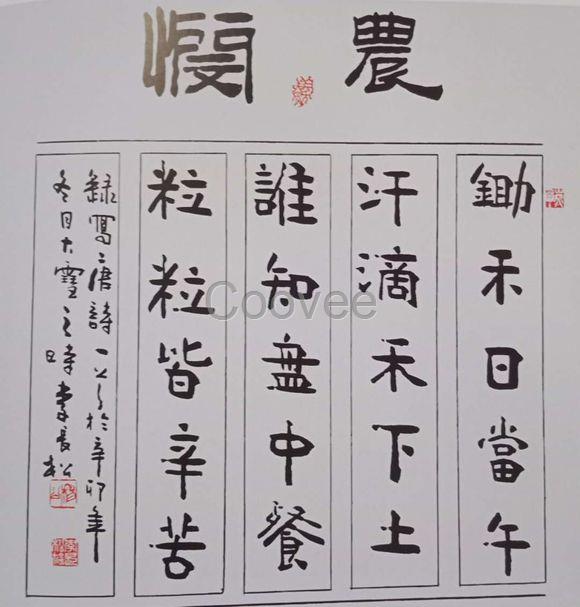 農
鋤禾日當午
汗滴禾下土
誰知盘中餐
粒粒皆辛苦
録寫唐詩一首於辛卯年
冬月大雪之時李長松
Coovee